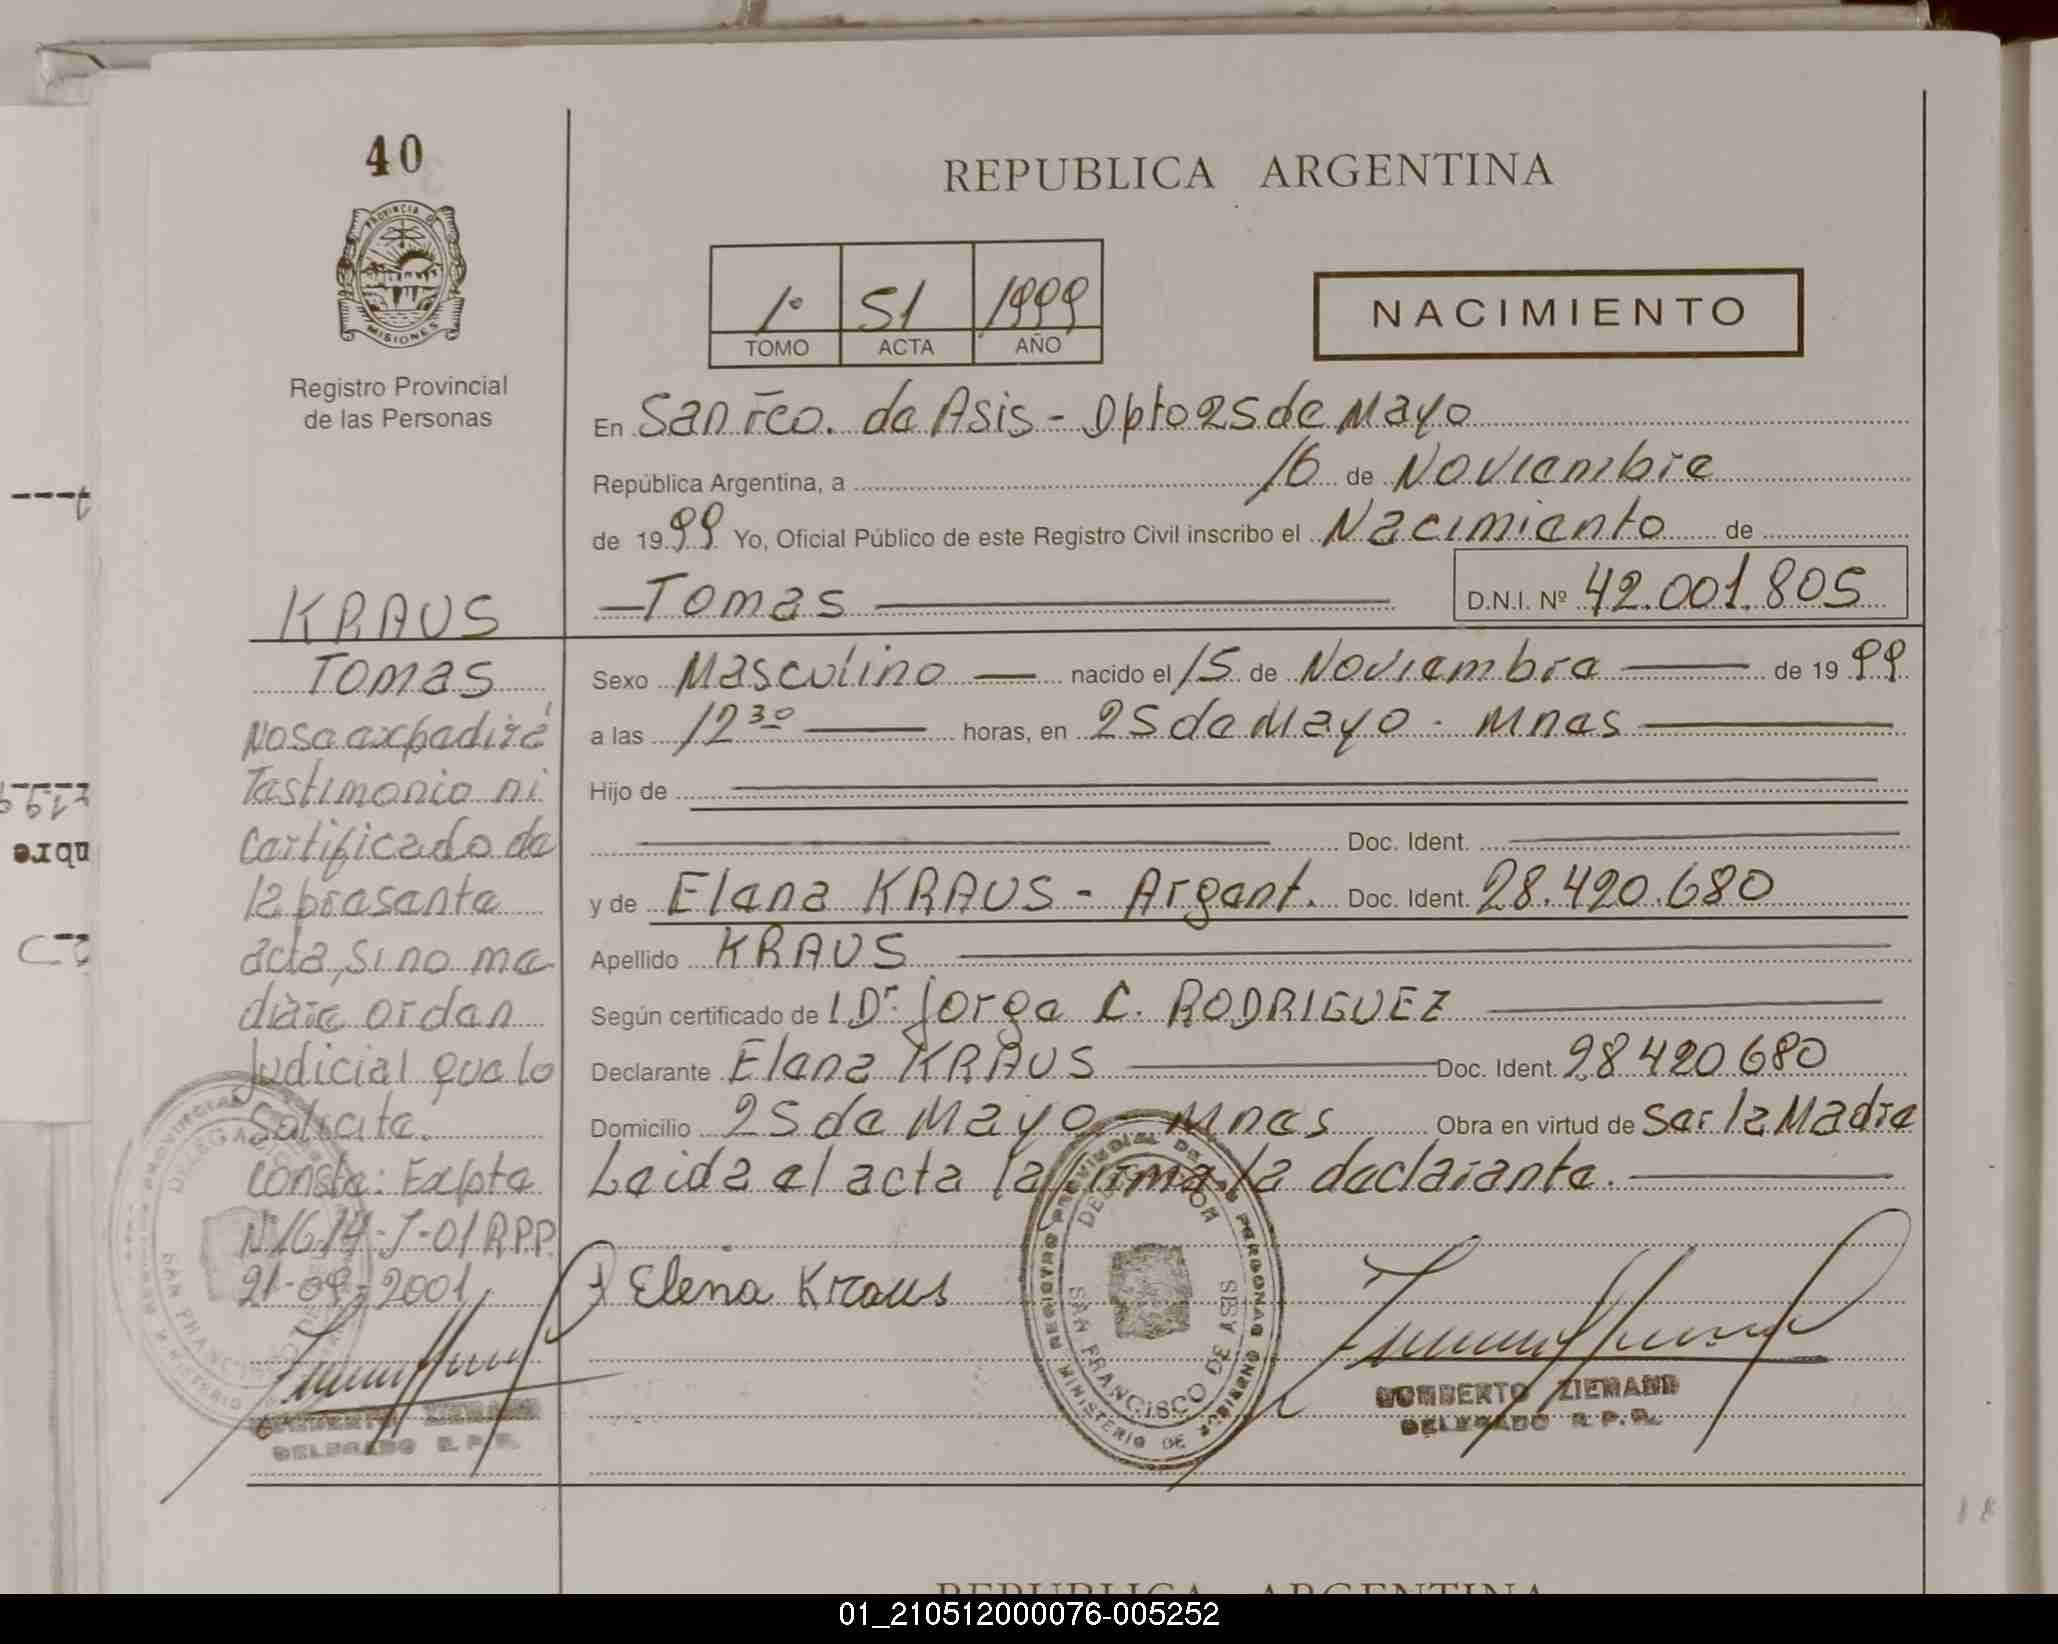 40
REPUBLICA ARGENTINA
PROVINCIA DE
MISIONES
Registro Provincial
de las Personas
1º 51 1999
TOMO ACTA AÑO
NACIMIENTO
En San Fco. de Asis - Dpto 25 de Mayo
República Argentina, a 16 de Noviembre
de 1999 Yo, Oficial Público de este Registro Civil inscribo el Nacimiento de
Tomas D.N.I. Nº 42.001.805
Sexo Masculino nacido el 15 de Noviembre de 1999
a las 12 30 horas, en 25 de Mayo - Mnes
Hijo de
Doc. Ident.
y de Elena KRAUS - Argent. Doc. Ident. 28.420.680
Apellido KRAUS
Según certificado de l Dr. Jorge C. RODRIGUEZ
Declarante Elena KRAUS Doc. Ident. 28420680
Domicilio 25 de Mayo - Mnes Obra en virtud de ser la Madre
Leida el acta la firma la declarante.
Elena Kraus
REGISTRO PROVINCIAL DE LAS PERSONAS
SAN FRANCISCO DE ASIS
MINISTERIO DE
ZIEMANN
DELEGADO R.P.P.
KRAUS
TOMAS
No se expedirá
Testimonio ni
Certificado de
la presente
acta, si no me
diare orden
judicial que lo
solicite.
Conste: Expte
Nº 1614-J-01 R.P.P.
21-09-2001
ZIEMANN
DELEGADO R.P.P.
SAN FRANCISCO
REPUBLICA ARGENTINA
01_210512000076-005252